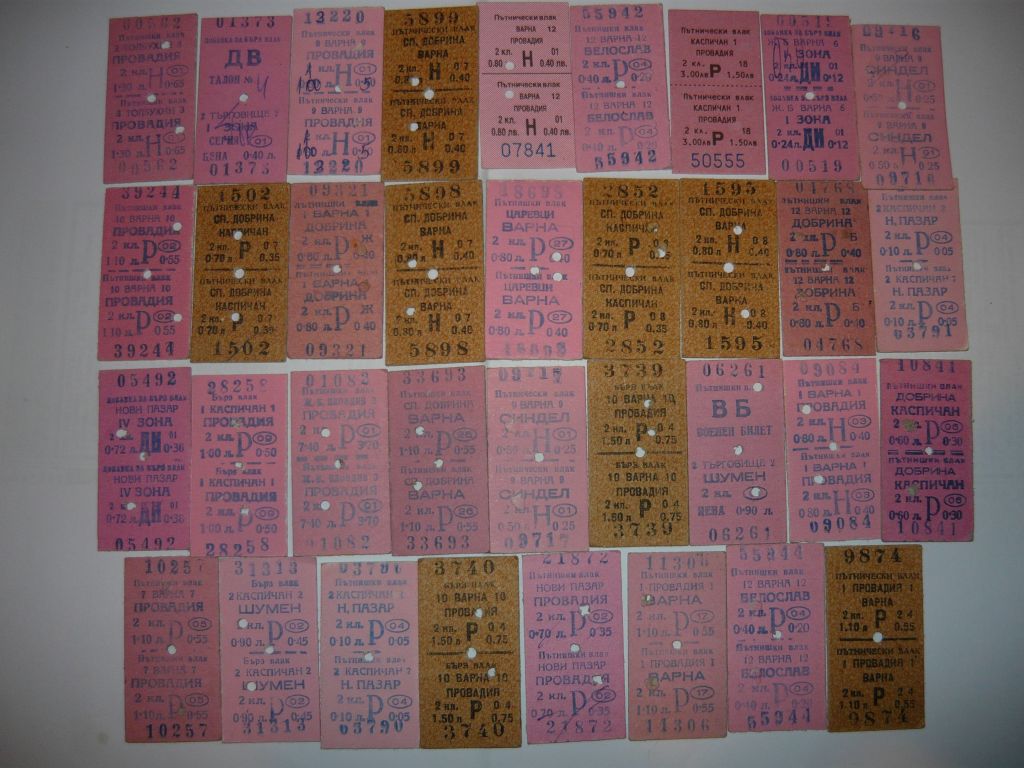 00562
ПРОВАДИЯ
00562
01373
ДВ
ТАЛОН №
2 ТЪРГОВИЩЕ 2
1 ЗОНА
0.40 л.
01373
13220
9 ВАРНА 9
ПРОВАДИЯ
Н 01
9 ВАРНА 9
ПРОВАДИЯ
Н 01
13220
5899
ПЪТНИЧЕСКИ ВЛАК
СП. ДОБРИНА
ВАРНА
2 кл. Н 0 7
0.80 л. 0.40
ПЪТНИЧЕСКИ ВЛАК
СП. ДОБРИНА
ВАРНА
2 кл. Н 0 7
0.80 л. 0.40
5899
Пътнически влак
ВАРНА 12
ПРОВАДИЯ
2 кл. Н 01
0.80 0.40 лв.
Пътнически влак
ВАРНА 12
ПРОВАДИЯ
2 кл. Н 01
0.80 лв. 0.40 лв.
07841
55942
Пътнишки влак
12 ВАРНА 12
БЕЛОСЛАВ
2 кл. Р 04
0·40 л. 0·20
Пътнишки влак
12 ВАРНА 12
БЕЛОСЛАВ
2 кл. Р 04
0·40 л. 0·20
55942
Пътнически влак
КАСПИЧАН 1
ПРОВАДИЯ
2 кл. Р 18
3.00лв 1.50лв
Пътнически влак
КАСПИЧАН 1
ПРОВАДИЯ
2 кл. Р 18
3.00лв 1.50лв
50555
00519
ДОБАВКА ЗА БЪРЗ ВЛАК
1 ЗОНА
2 кл. ДИ 01
0·24л. 0·12
ДОБАВКА ЗА БЪРЗ ВЛАК
1 ЗОНА
2 кл. ДИ 01
0·24л. 0·12
00519
09716
9 ВАРНА 9
СИНДЕЛ
2 кл. Н 01
0·50 л. 0·25
9 ВАРНА 9
СИНДЕЛ
2 кл. Н 01
0·50 л. 0·25
09716
39244
Пътнишки влак
10 ВАРНА 10
ПРОВАДИЯ
2 кл. Р 02
1·10 л. 0·55
Пътнишки влак
10 ВАРНА 10
ПРОВАДИЯ
2 кл. Р 02
1·10 л. 0·55
39244
1502
ПЪТНИЧЕСКИ ВЛАК
СП. ДОБРИНА
КАСПИЧАН
2 кл. Р 0 7
0·70 л. 0.35
СП. ДОБРИНА
КАСПИЧАН
2 кл. Р 0 7
0·70 л. 0.35
1502
09321
ПЪТНИШКИ ВЛАК
1 ВАРНА 1
ДОБРИНА
2 кл. Р Ж
0·80 л. 0·40
1 ВАРНА 1
ДОБРИНА
2 кл. Р Ж
0·80 л. 0·40
09321
5898
ПЪТНИЧЕСКИ ВЛАК
СП. ДОБРИНА
ВАРНА
2 кл. Н 0 7
0.80 л. 0.40
СП. ДОБРИНА
ВАРНА
2 кл. Н 0 7
0.80 л. 0.40
5898
18698
Пътнишки влак
ЦАРЕВЦИ
ВАРНА
2 кл. Р 27
0·80 л. 0·40
Пътнишки влак
ЦАРЕВЦИ
ВАРНА
2 кл. Р 27
0·80 л. 0·40
18698
2852
ПЪТНИЧЕСКИ ВЛАК
СП. ДОБРИНА
КАСПИЧАН
2 кл. Р
0·70 л. 0.35
СП. ДОБРИНА
КАСПИЧАН
2 кл. Р
0·70 л. 0.35
2852
1595
ПЪТНИЧЕСКИ ВЛАК
СП. ДОБРИНА
ВАРНА
2 кл. Н 0 8
0.80 л. 0.40
СП. ДОБРИНА
ВАРНА
2 кл. Н 0 8
0.80 л. 0.40
1595
04768
ПЪТНИШКИ ВЛАК
12 ВАРНА 12
ДОБРИНА
2 кл. Р Б
0·80 л. 0·40
ПЪТНИШКИ ВЛАК
12 ВАРНА 12
ДОБРИНА
2 кл. Р Б
0·80 л. 0·40
04768
Пътнишки влак
2 КАСПИЧАН 2
Н. ПАЗАР
2 кл. Р 04
0·10 л. 0·05
Пътнишки влак
2 КАСПИЧАН 2
Н. ПАЗАР
2 кл. Р 04
0·10 л. 0·05
03791
05492
ДОБАВКА ЗА БЪРЗ ВЛАК
НОВИ ПАЗАР
IV ЗОНА
2 кл. ДИ 01
0·72 л. 0·36
ДОБАВКА ЗА БЪРЗ ВЛАК
НОВИ ПАЗАР
IV ЗОНА
2 кл. ДИ 01
0·72 л. 0·36
05492
28258
Бърз влак
1 КАСПИЧАН 1
ПРОВАДИЯ
2 кл. Р 09
1·00 л. 0·50
Бърз влак
1 КАСПИЧАН 1
ПРОВАДИЯ
2 кл. Р 09
1·00 л. 0·50
28258
01082
Пътнишки влак
ПРОВАДИЯ
2 кл. Р 01
7·40 л. 3·70
Пътнишки влак
ПРОВАДИЯ
2 кл. Р 01
7·40 л. 3·70
01082
33693
Пътнишки влак
СП. ДОБРИНА
ВАРНА
2 кл. Р 26
1·10 л. 0·55
Пътнишки влак
СП. ДОБРИНА
ВАРНА
2 кл. Р 26
1·10 л. 0·55
33693
09717
Пътнишки влак
9 ВАРНА 9
СИНДЕЛ
2 кл. Н 01
0·50 л. 0·25
Пътнишки влак
9 ВАРНА 9
СИНДЕЛ
2 кл. Н 01
0·50 л. 0·25
09717
3739
БЪРЗ ВЛАК
10 ВАРНА 10
ПРОВАДИЯ
2 кл. Р 0 4
1.50 л 0.75
БЪРЗ ВЛАК
10 ВАРНА 10
ПРОВАДИЯ
2 кл. Р 0 4
1.50 л 0.75
3739
06261
Пътнишки влак
ВБ
ВОЕНЕН БИЛЕТ
2 ТЪРГОВИЩЕ 2
ШУМЕН
2 кл.
ЦЕНА 0·90 л.
06261
09084
Пътнишки влак
1 ВАРНА 1
ПРОВАДИЯ
2 кл. Н 03
0·80 л. 0·40
Пътнишки влак
1 ВАРНА 1
ПРОВАДИЯ
2 кл. Н 03
0·80 л. 0·40
09084
10841
ПЪТНИШКИ ВЛАК
ДОБРИНА
КАСПИЧАН
2 кл. Р 06
0·60 л. 0·30
ПЪТНИШКИ ВЛАК
ДОБРИНА
КАСПИЧАН
2 кл. Р 06
0·60 л. 0·30
10841
10257
Пътнишки влак
7 ВАРНА 7
ПРОВАДИЯ
2 кл. Р 05
1·10 л. 0·55
Пътнишки влак
7 ВАРНА 7
ПРОВАДИЯ
2 кл. Р 05
1·10 л. 0·55
10257
31313
Бърз влак
2 КАСПИЧАН 2
ШУМЕН
2 кл. Р 02
0·90 л. 0·45
Бърз влак
2 КАСПИЧАН 2
ШУМЕН
2 кл. Р 02
0·90 л. 0·45
31313
03790
Пътнишки влак
2 КАСПИЧАН 2
Н. ПАЗАР
2 кл. Р 04
0·10 л. 0·05
Пътнишки влак
2 КАСПИЧАН 2
Н. ПАЗАР
2 кл. Р 04
0·10 л. 0·05
03790
3740
БЪРЗ ВЛАК
10 ВАРНА 10
ПРОВАДИЯ
2 кл. Р 0 4
1.50 л 0.75
БЪРЗ ВЛАК
10 ВАРНА 10
ПРОВАДИЯ
2 кл. Р 0 4
1.50 л 0.75
3740
21872
Пътнишки влак
НОВИ ПАЗАР
ПРОВАДИЯ
2 кл. Р 02
0·70 л. 0·35
Пътнишки влак
НОВИ ПАЗАР
ПРОВАДИЯ
2 кл. Р 02
0·70 л. 0·35
21872
11306
Пътнишки влак
1 ПРОВАДИЯ 1
ВАРНА
2 кл. Р 17
1·10 л. 0·55
Пътнишки влак
1 ПРОВАДИЯ 1
ВАРНА
2 кл. Р 17
1·10 л. 0·55
11306
55944
Пътнишки влак
12 ВАРНА 12
БЕЛОСЛАВ
2 кл. Р 04
0·40 л. 0·20
Пътнишки влак
12 ВАРНА 12
БЕЛОСЛАВ
2 кл. Р 04
0·40 л. 0·20
55944
9874
ПЪТНИЧЕСКИ ВЛАК
1 ПРОВАДИЯ 1
ВАРНА
2 кл. Р 2 4
1.10 л 0.55
ПЪТНИЧЕСКИ ВЛАК
1 ПРОВАДИЯ 1
ВАРНА
2 кл. Р 2 4
1.10 л 0.55
9874